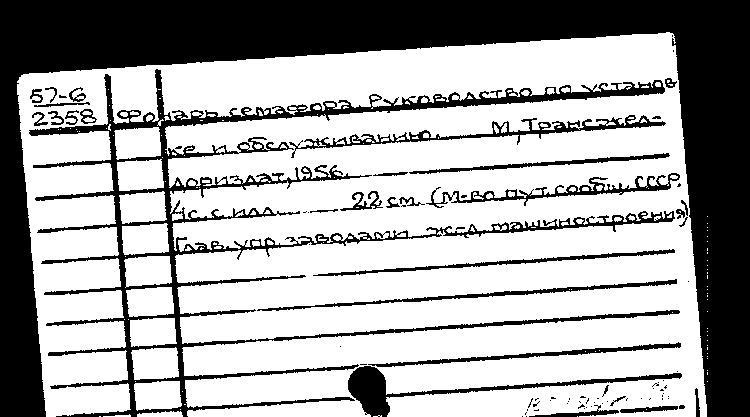 57-6
2358 Фонарь семафора. Руководство по установ
ке и обслуживанию. М, Трансжел-
дориздат, 1956.
4с. с илл. 22 см. (М-во пут. сообщ. СССР.
Глав. упр. заводами ж.-д. машиностроения)